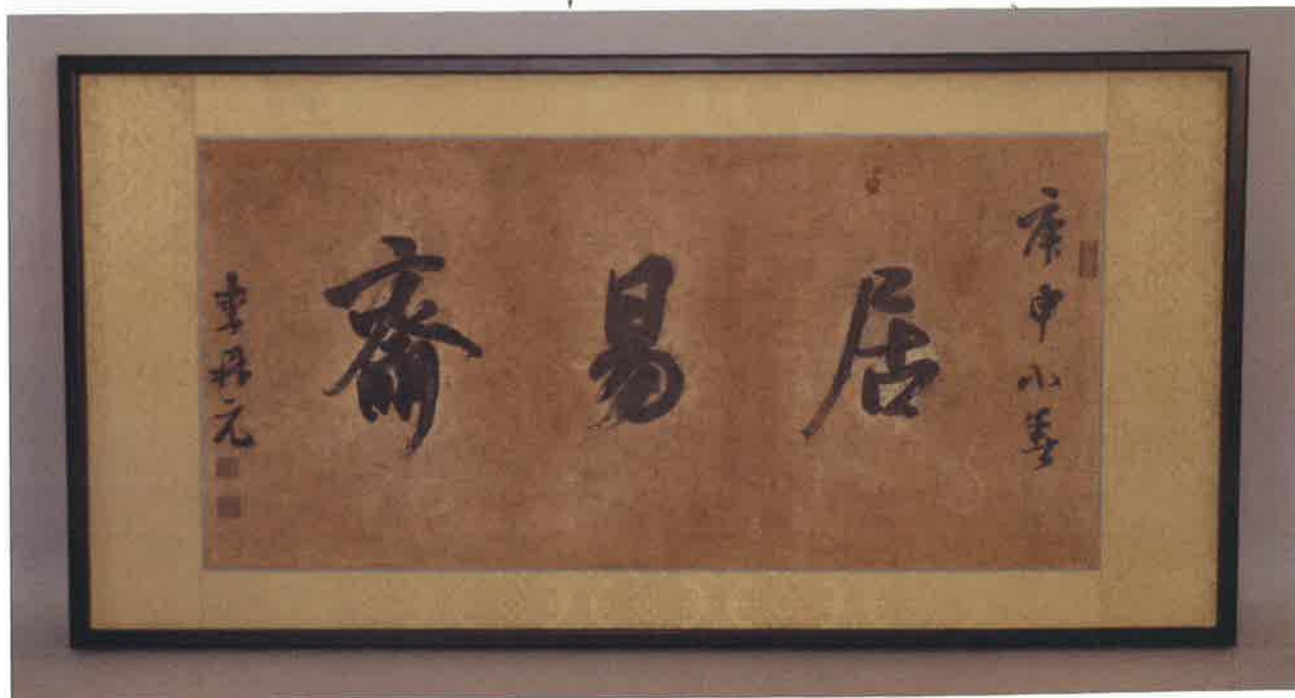 庚申小春
居易齋
李 元